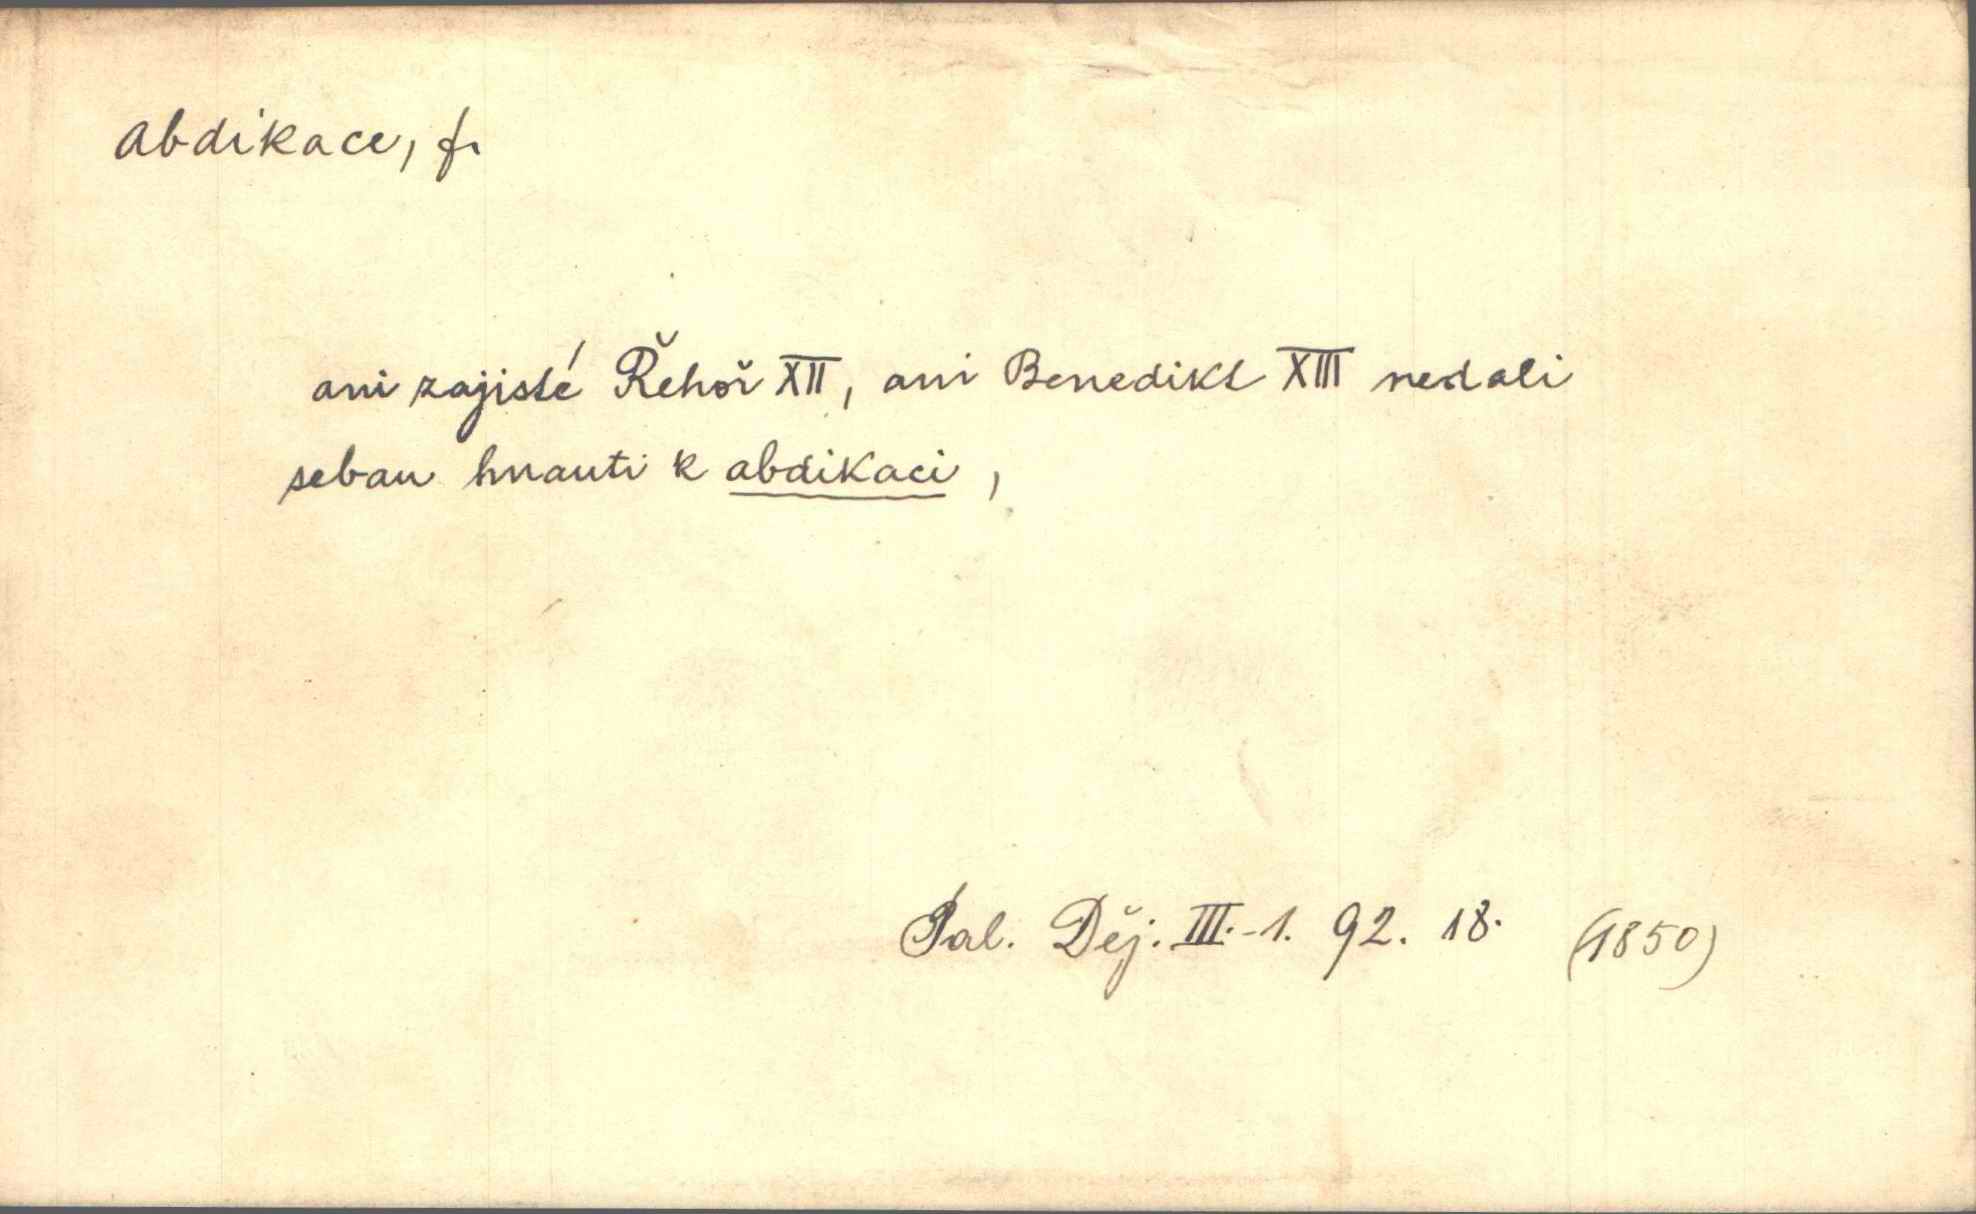 abdikace, f.
ani zajisté Řehoř XII, ani Benedikt XIII nedali
sebau hnauti k abdikaci,
Pal. Děj. III.-1. 92. 18. (1850)